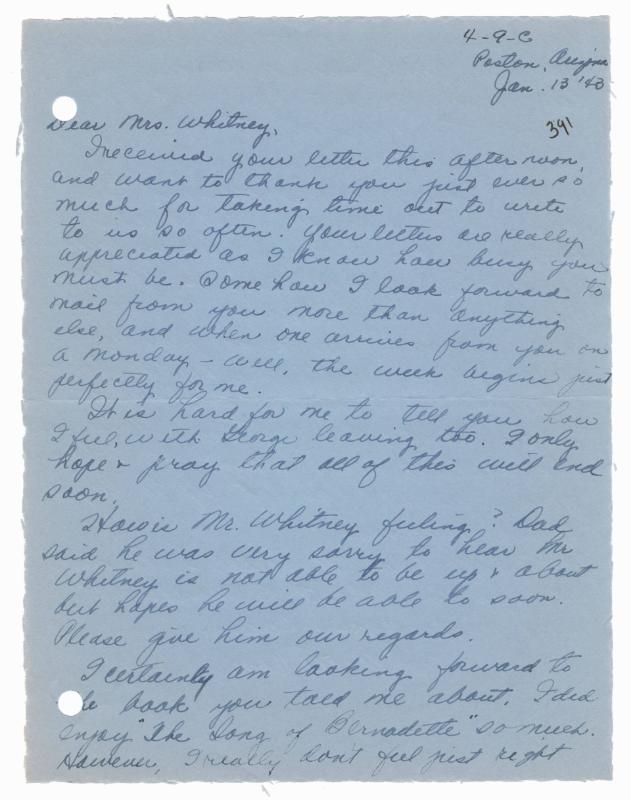 4-9-C
Poston, Arizona
Jan. 13 '43
391
Dear Mrs. Whitney,
I received your letter this afternoon,
and want to thank you just ever so
much for taking time out to write
to us so often. Your letters are really
appreciated as I know how busy you
must be. Somehow I look forward to
mail from you more than anything
else, and when one arrives from you on
a Monday – well, the week begins just
perfectly for me.
It is hard for me to tell you how
I feel, with George leaving too. I only
hope & pray that all of this will end
soon.
How is Mr. Whitney feeling? Dad
said he was very sorry to hear Mr
Whitney is not able to be up & about
but hopes he will be able to soon.
Please give him our regards.
I certainly am looking forward to
the book you told me about. I did
enjoy "The Song of Bernadette" so much.
However, I really don't feel just right